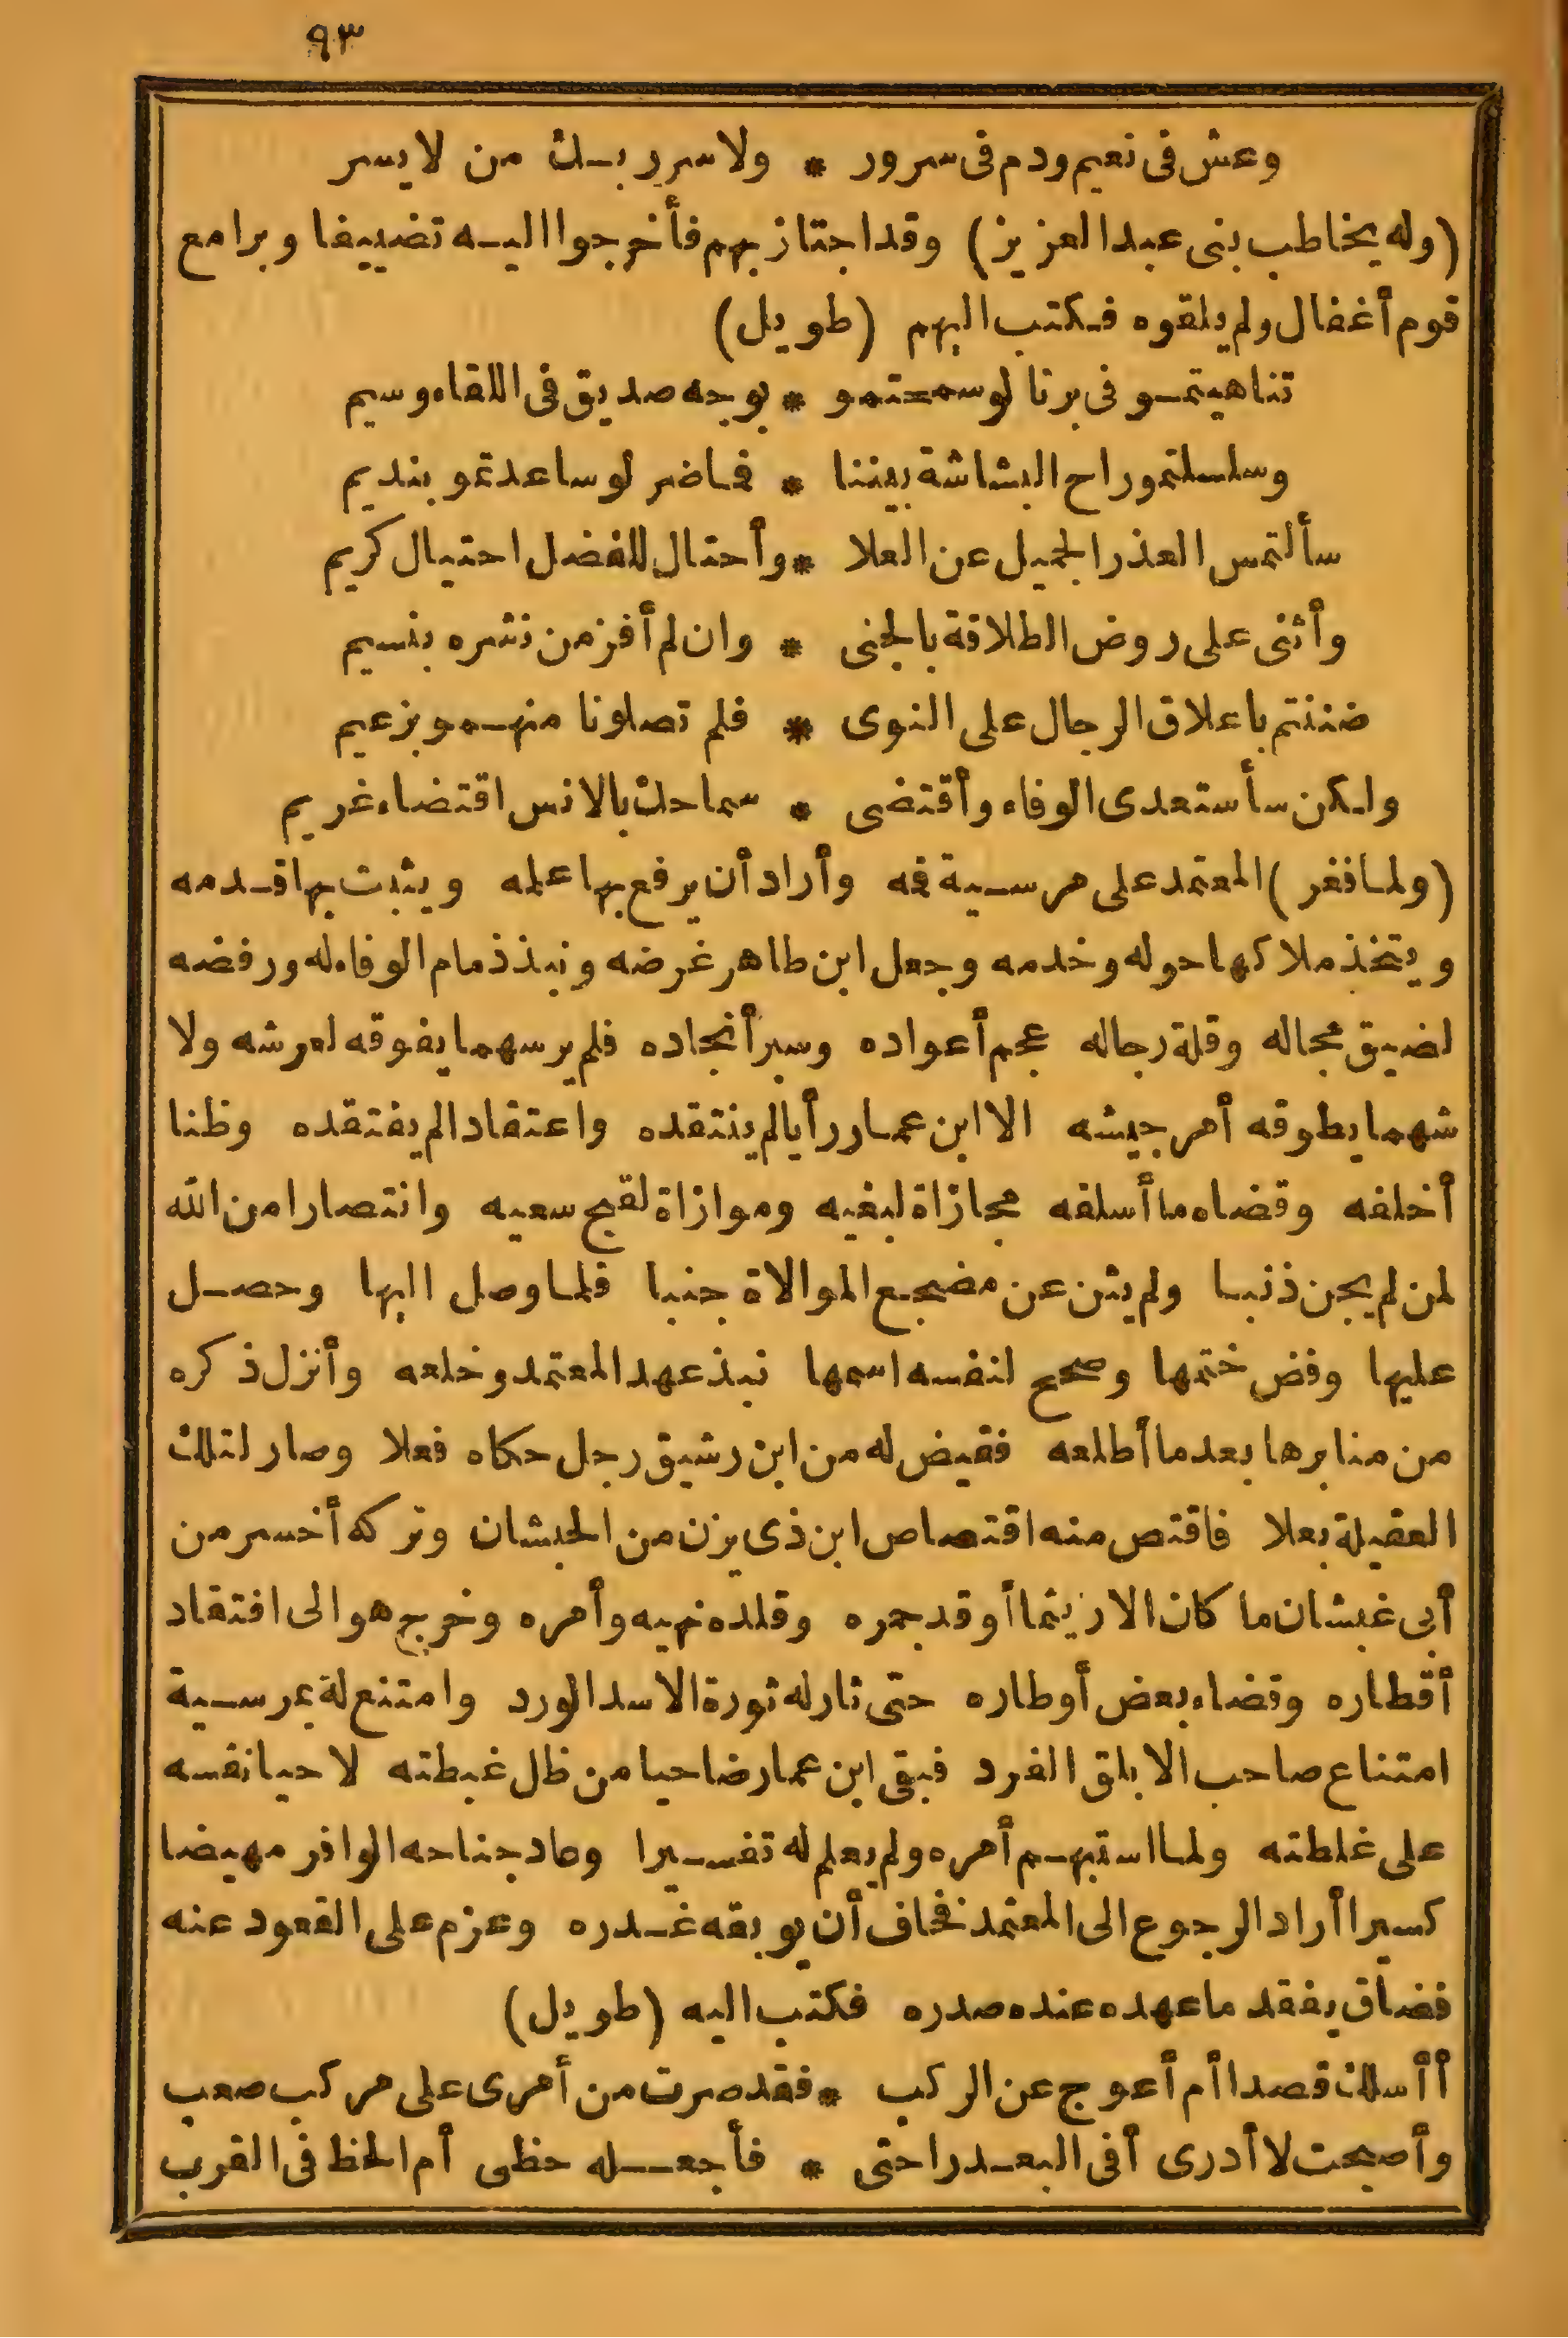 ٩٣
وعش فى نعيم ودم فى سرور * ولا سر ربك من لا يسر
(وله يخاطب بنى عبد العزيز) وقد اجتاز بهم فأخرجوا اليه تضييفا وبرا مع
قوم أغفال ولم يلقوه فكتب اليهم (طويل)
تناهيتمو فى برنا لو سمحتمو * بوجه صديق فى اللقاء وسيم
وسلسلتمو راح البشاشة بيننا * فما ضر لو ساعدتمو بنديم
سألتمس العذر الجميل عن العلا * وأحتال للفضل احتيال كريم
وأثنى على روض الطلاقة بالجنى * وان لم أفز من نشره بنسيم
ضننتم باعلاق الرجال على النوى * فلم تصلونا منهمو بزعيم
ولكن سأستعدى الوفاء وأقتضى * سماحك بالانس اقتضاء غريم
(ولما فغر) المعتمد على مرسية فمه وأراد أن يرفع بها علمه ويثبت بها قدمه
ويتخذ ملاكها حوله وخدمه وجعل ابن طاهر غرضه ونبذ ذمام الوفاء له ورفضه
لضيق مجاله وقلة رجاله عجم أعواده وسبر أنجاده فلم ير سهما يفوقه لعرشه ولا
شهما يطوقه أمر جيشه الا ابن عمار رأيا لم ينتقده واعتقادا لم يفتقده وظنا
أخلفه وقضاء ما أسلفه مجازاة لبغيه وموازاة لقبح سعيه وانتصارا من الله
لمن لم يجن ذنبا ولم يثن عن مضجع الموالاة جنبا فلما وصل اليها وحصل
عليها وفض ختمها وصحح لنفسه اسمها نبذ عهد المعتمد وخلعه وأنزل ذكره
من منابرها بعدما أطلعه فقيض له من ابن رشيق رجل حكاه فعلا وصار لتلك
العقيلة بعلا فاقتص منه اقتصاص ابن ذى يزن من الحبشان وتركه أخسر من
أبى غبشان ما كان الا ريثما أوقد جمره وقلده نهيه وأمره وخرج هو الى افتقاد
أقطاره وقضاء بعض أوطاره حتى ثار له ثورة الاسد الورد وامتنع له بمرسية
امتناع صاحب الابلق الفرد فبقى ابن عمار ضاحيا من ظل غبطته لا حيا نفسه
على غلطته ولما استبهم أمره ولم يعلم له تفسيرا وعاد جناحه الوافر مهيضا
كسيرا أراد الرجوع الى المعتمد فخاف أن يوبقه غدره وعزم على القعود عنه
فضاق بفقد ما عهده عنده صدره فكتب اليه (طويل)
أأسلك قصدا أم أعوج عن الركب * فقد صرت من أمرى على مركب صعب
وأصبحت لا أدرى أفى البعد راحتى * فأجعله حظى أم الحظ فى القرب